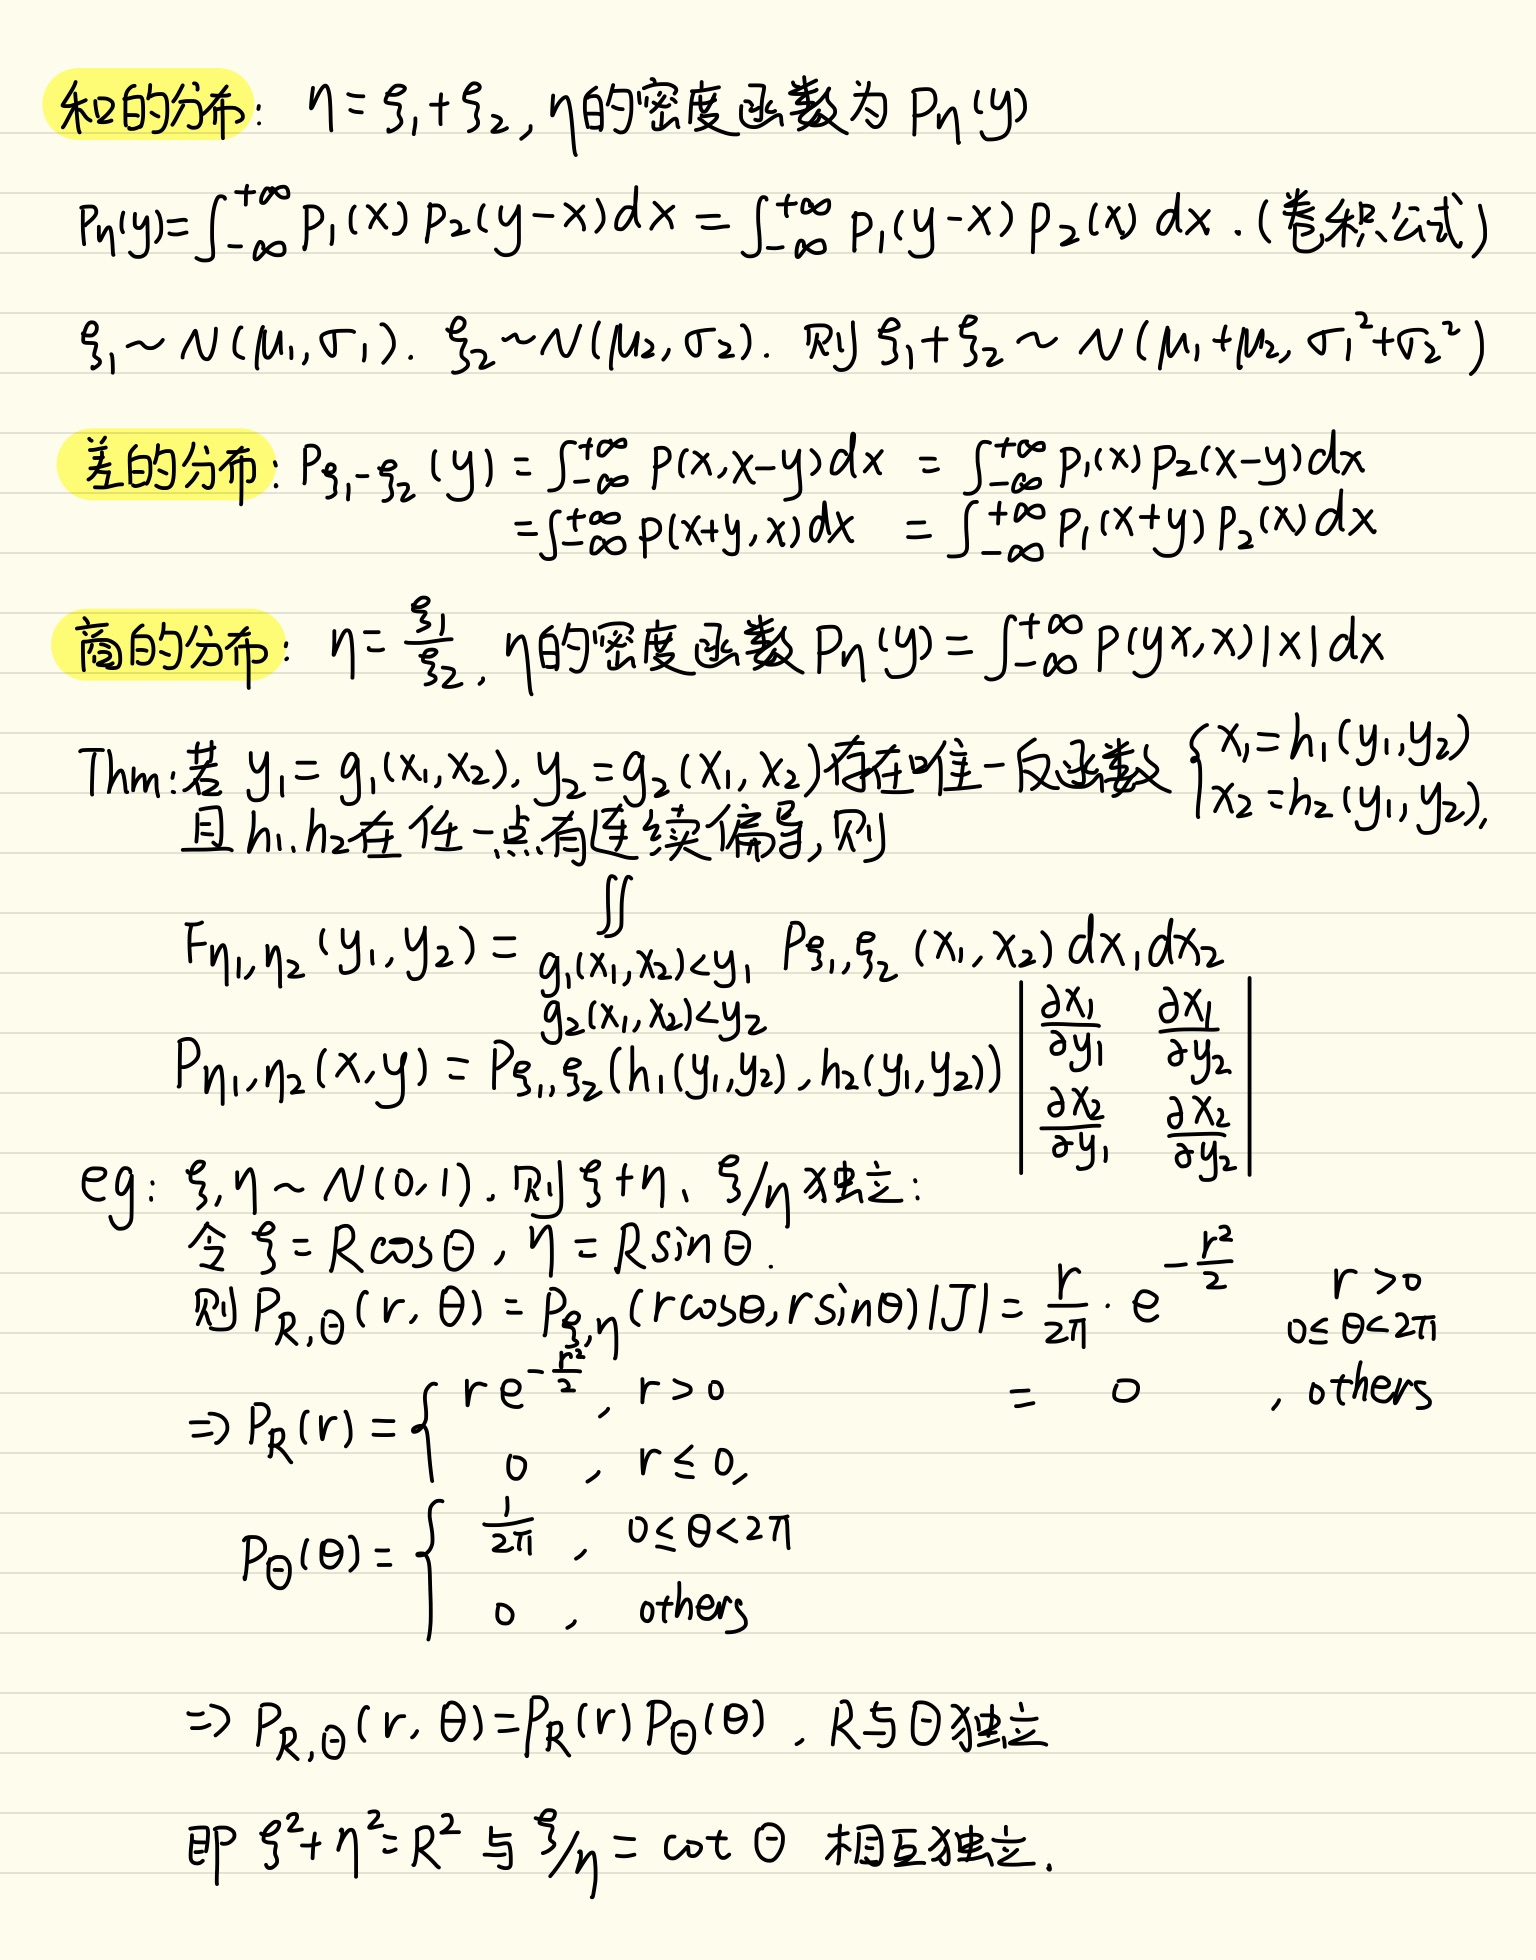 和的分布: η=ξ₁+ξ₂, η的密度函数为 Pη(y)
Pη(y)=∫_{-∞}^{+∞} P₁(x) P₂(y-x)dx = ∫_{-∞}^{+∞} P₁(y-x) P₂(x) dx .(卷积公式)
ξ₁~N(μ₁,σ₁). ξ₂~N(μ₂,σ₂). 则 ξ₁+ξ₂ ~ N(μ₁+μ₂, σ₁²+σ₂²)
差的分布: P_{ξ₁-ξ₂}(y) = ∫_{-∞}^{+∞} P(x,x-y)dx = ∫_{-∞}^{+∞} P₁(x) P₂(x-y)dx
=∫_{-∞}^{+∞} P(x+y,x)dx = ∫_{-∞}^{+∞} P₁(x+y) P₂(x)dx
商的分布: η=ξ₁/ξ₂, η的密度函数 Pη(y)=∫_{-∞}^{+∞} P(yx,x)|x|dx
Thm:若 y₁=g₁(x₁,x₂), y₂=g₂(x₁,x₂)存在唯一反函数 { x₁=h₁(y₁,y₂)
x₂=h₂(y₁,y₂),
且h₁.h₂在任一点有连续偏导,则
F_{η₁,η₂}(y₁,y₂) = ∬_{g₁(x₁,x₂)<y₁ g₂(x₁,x₂)<y₂} P_{ξ₁,ξ₂}(x₁,x₂)dx₁dx₂
P_{η₁,η₂}(x,y) = P_{ξ₁,ξ₂}(h₁(y₁,y₂),h₂(y₁,y₂)) | ∂x₁/∂y₁ ∂x₁/∂y₂
∂x₂/∂y₁ ∂x₂/∂y₂ |
eg: ξ,η~N(0,1).则ξ+η、ξ/η独立:
令 ξ=Rcosθ, η=Rsinθ.
则 P_{R,Θ}(r,θ) = P_{ξ,η}(rcosθ,rsinθ)|J| = r/2π · e^{-r²/2} r>0
0≤θ<2π
= 0 , others
⇒ P_R(r) = { re^{-r²/2}, r>0
0 , r≤0,
P_Θ(θ) = { 1/2π , 0≤θ<2π
0 , others
⇒ P_{R,Θ}(r,θ)=P_R(r)P_Θ(θ) , R与Θ独立
即 ξ²+η²=R² 与 ξ/η = cot Θ 相互独立.